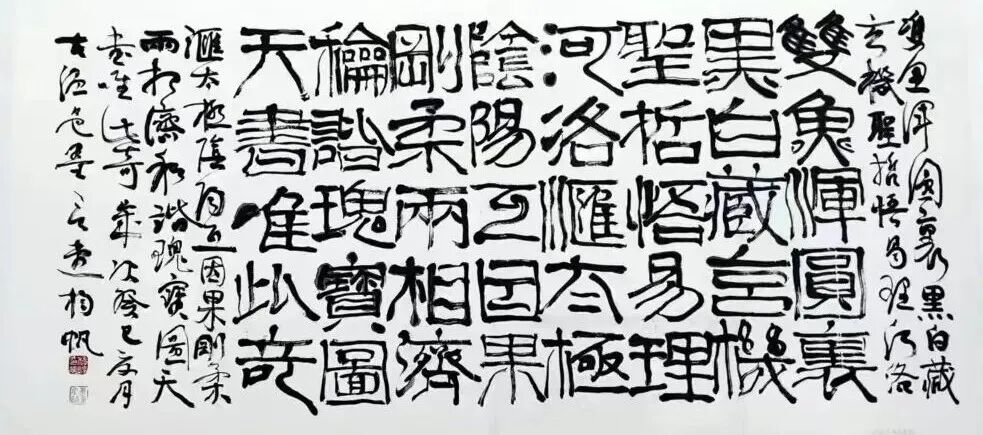 雙魚渾圓裏黑白藏
玄機聖哲悟易理河洛
雙魚渾圓裏
黑白藏玄機
聖哲悟易理
河洛滙太極
陰陽互因果
剛柔兩相濟
龢諧瑰寶圖
天書唯此奇
滙太極陰陽互因果剛柔
兩相濟和諧瑰寶圖天
書唯此奇歲次癸巳月